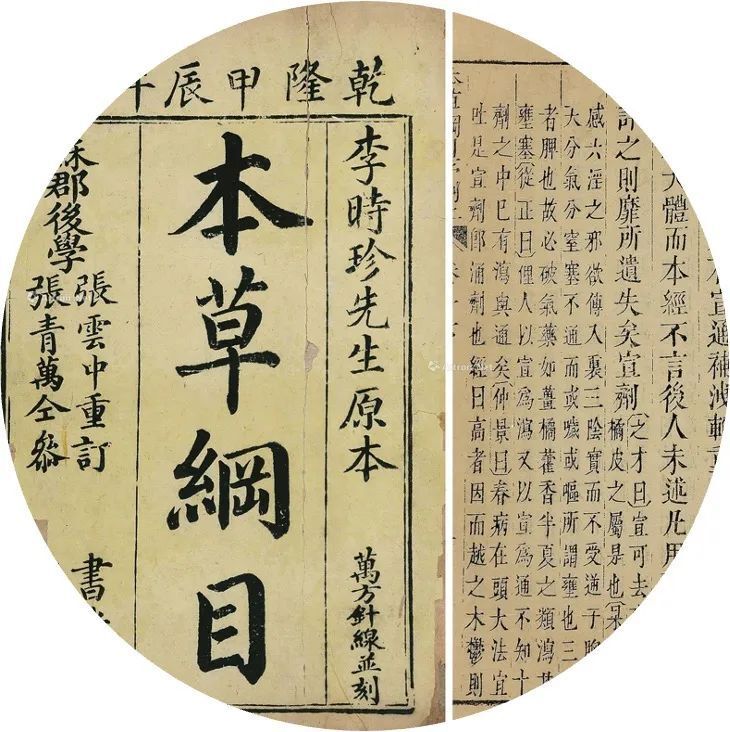 乾隆甲辰
李時珍先生原本
萬方針線並刻
本草綱目
郡後學
張雲中重訂
張青萬仝參
書
宣通補洩輕
大體而本經不言後人未述凡用
之則靡所遺失矣宣劑
之才曰宣可去
橘皮之屬是也
感六淫之邪欲傳入裏三陰實而不受逆于胸
大分氣分窒塞不通而或噦或嘔所謂壅也三
者脾也故必破氣藥如薑橘藿香半夏之類瀉其
壅塞從正曰俚人以宣爲瀉又以宣爲通不知十
劑之中已有瀉與通矣仲景曰春病在頭大法宜
吐是宣劑卽涌劑也經曰高者因而越之木鬱則